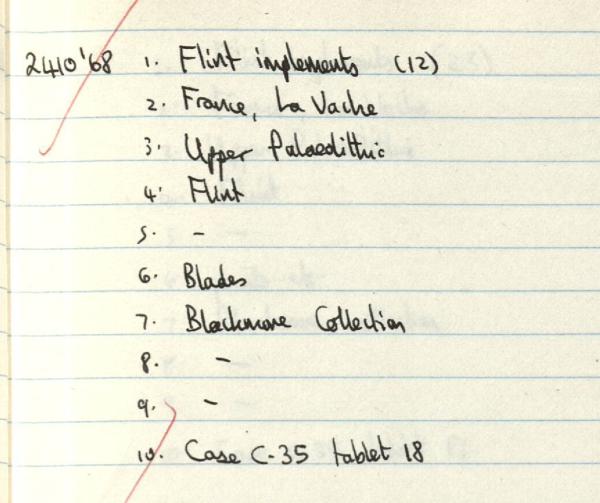 2410'68 1. Flint implements (12)
2. France, La Vache
3. Upper Palaeolithic
4. Flint
5. -
6. Blades
7. Blackmore Collection
8. -
9. -
10. Case C-35 tablet 18